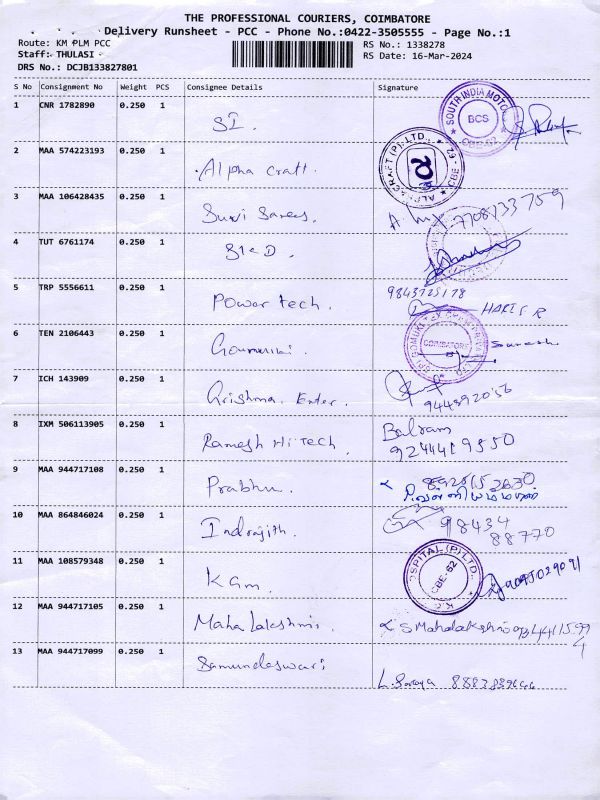 THE PROFESSIONAL COURIERS, COIMBATORE
Delivery Runsheet - PCC - Phone No.:0422-3505555 - Page No.:1
Route: KM PLM PCC
RS No.: 1338278
Staff: THULASI
RS Date: 16-Mar-2024
DRS No.: DCJB133827801
S No Consignment No Weight PCS Consignee Details Signature
1 CNR 1782890 0.250 1 SI.
SOUTH INDIA MOTO
BCS
CBE-62
2 MAA 574223193 0.250 1 Alpha craft.
3 MAA 106428435 0.250 1 7708133709
4 TUT 6761174 0.250 1
5 TRP 5556611 0.250 1 Power tech.
HARIS R
6 TEN 2106443 0.250 1 Suresh
COIMBATORE
7 ICH 143909 0.250 1 Grishma Enter.
8 IXM 506113905 0.250 1 Ramesh Hi tech. Balram
9 MAA 944717108 0.250 1 Prabhu.
10 MAA 864846024 0.250 1 Indrajith. 98434
88770
11 MAA 108579348 0.250 1 KGM. 9095029091
OSPITAL (P) LTD.,
CBE-62
12 MAA 944717105 0.250 1 Maha lakshmi. S Mahalakshmi
13 MAA 944717099 0.250 1 Samundeswari